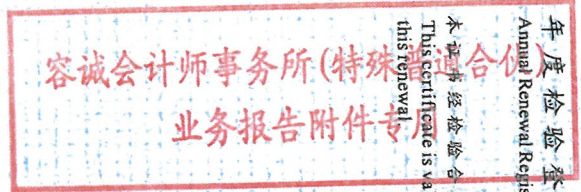 容诚会计师事务所(特殊普通合伙)
业务报告附件专用
年度检验登
Annual Renewal Regis
本证书经检验合
This certificate is va
this renewal